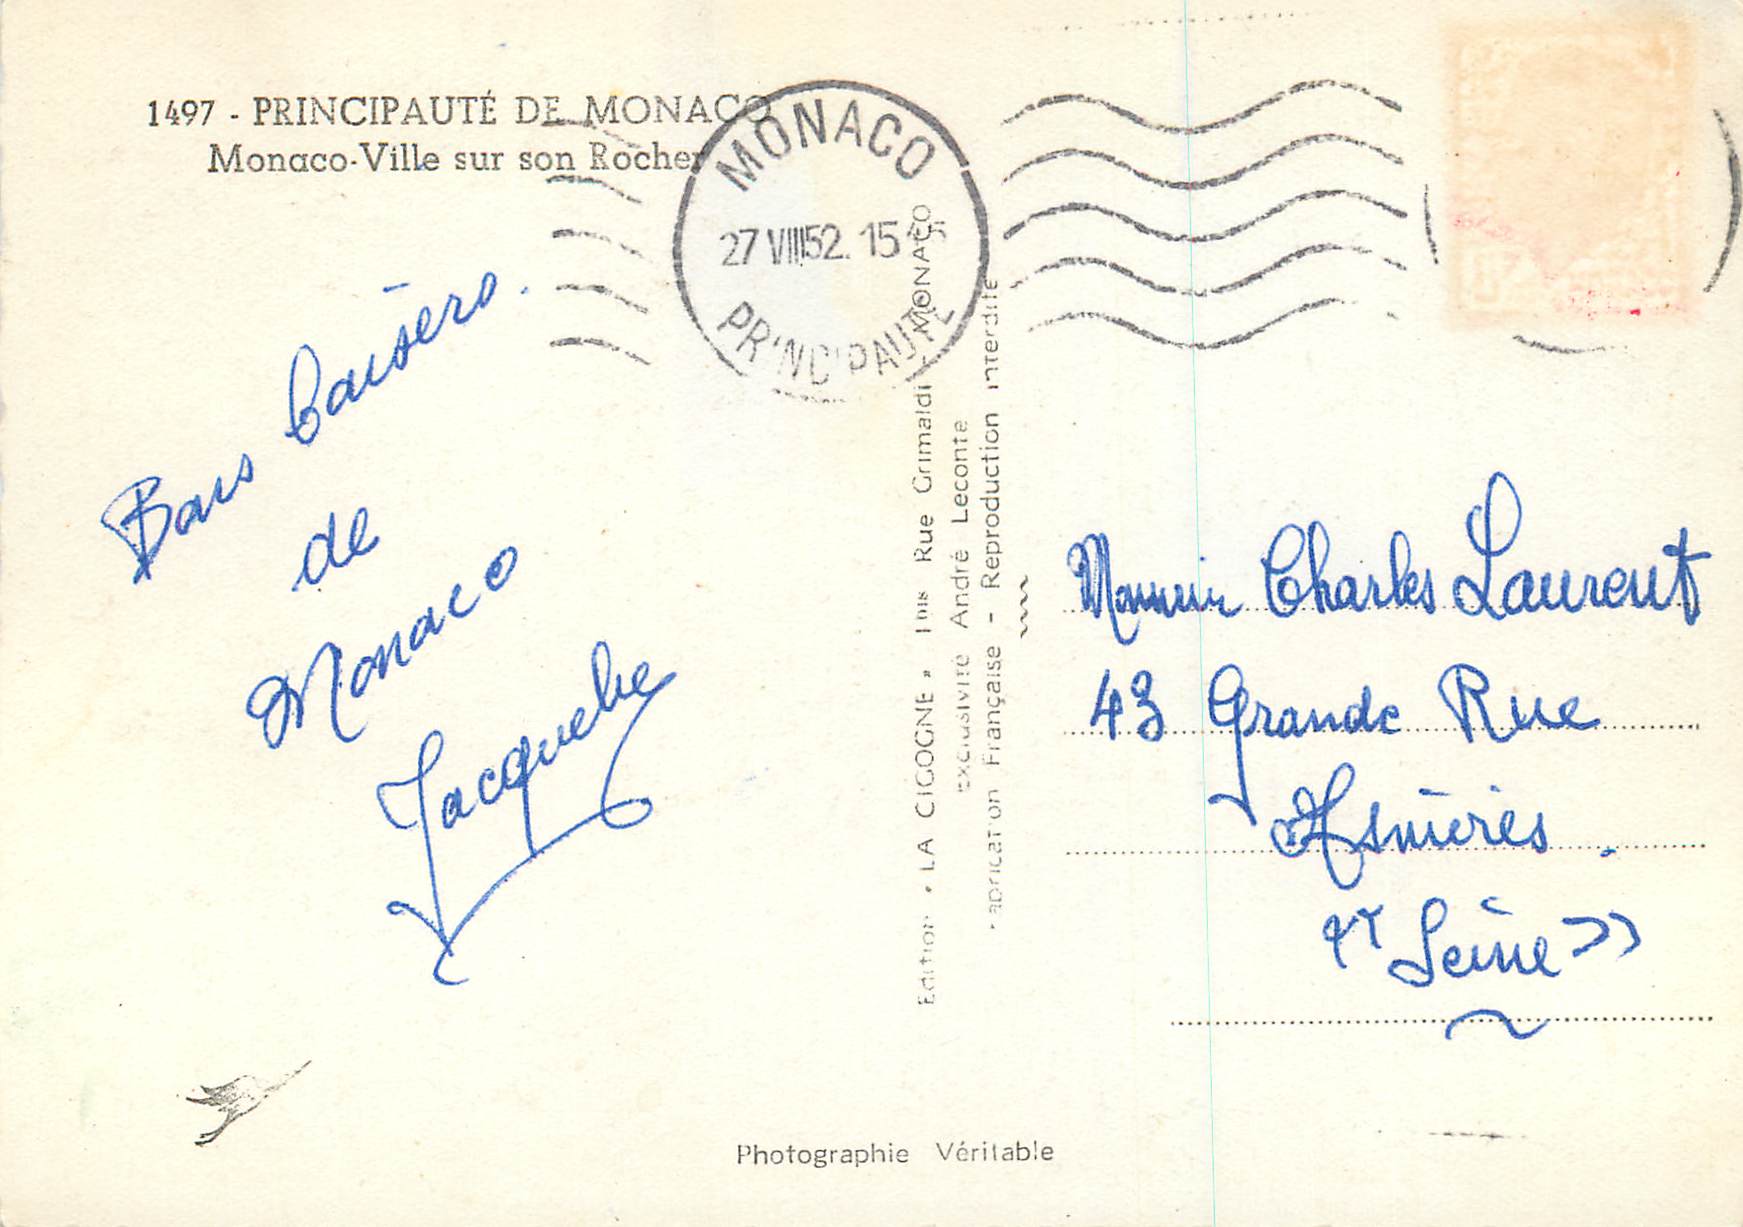 1497 - PRINCIPAUTÉ DE MONACO
Monaco-Ville sur son Rocher
MONACO
27 VIII 52. 15
PRINCIPAUTÉ
Bons baisers.
de
Monaco
Jacqueline
Edition « LA CIGOGNE » 1 bis Rue Grimaldi - MONACO
Exclusivité André Leconte
Fabrication Française - Reproduction interdite
Monsieur Charles Laurent
43 Grande Rue
Asnières.
Seine
Photographie Véritable